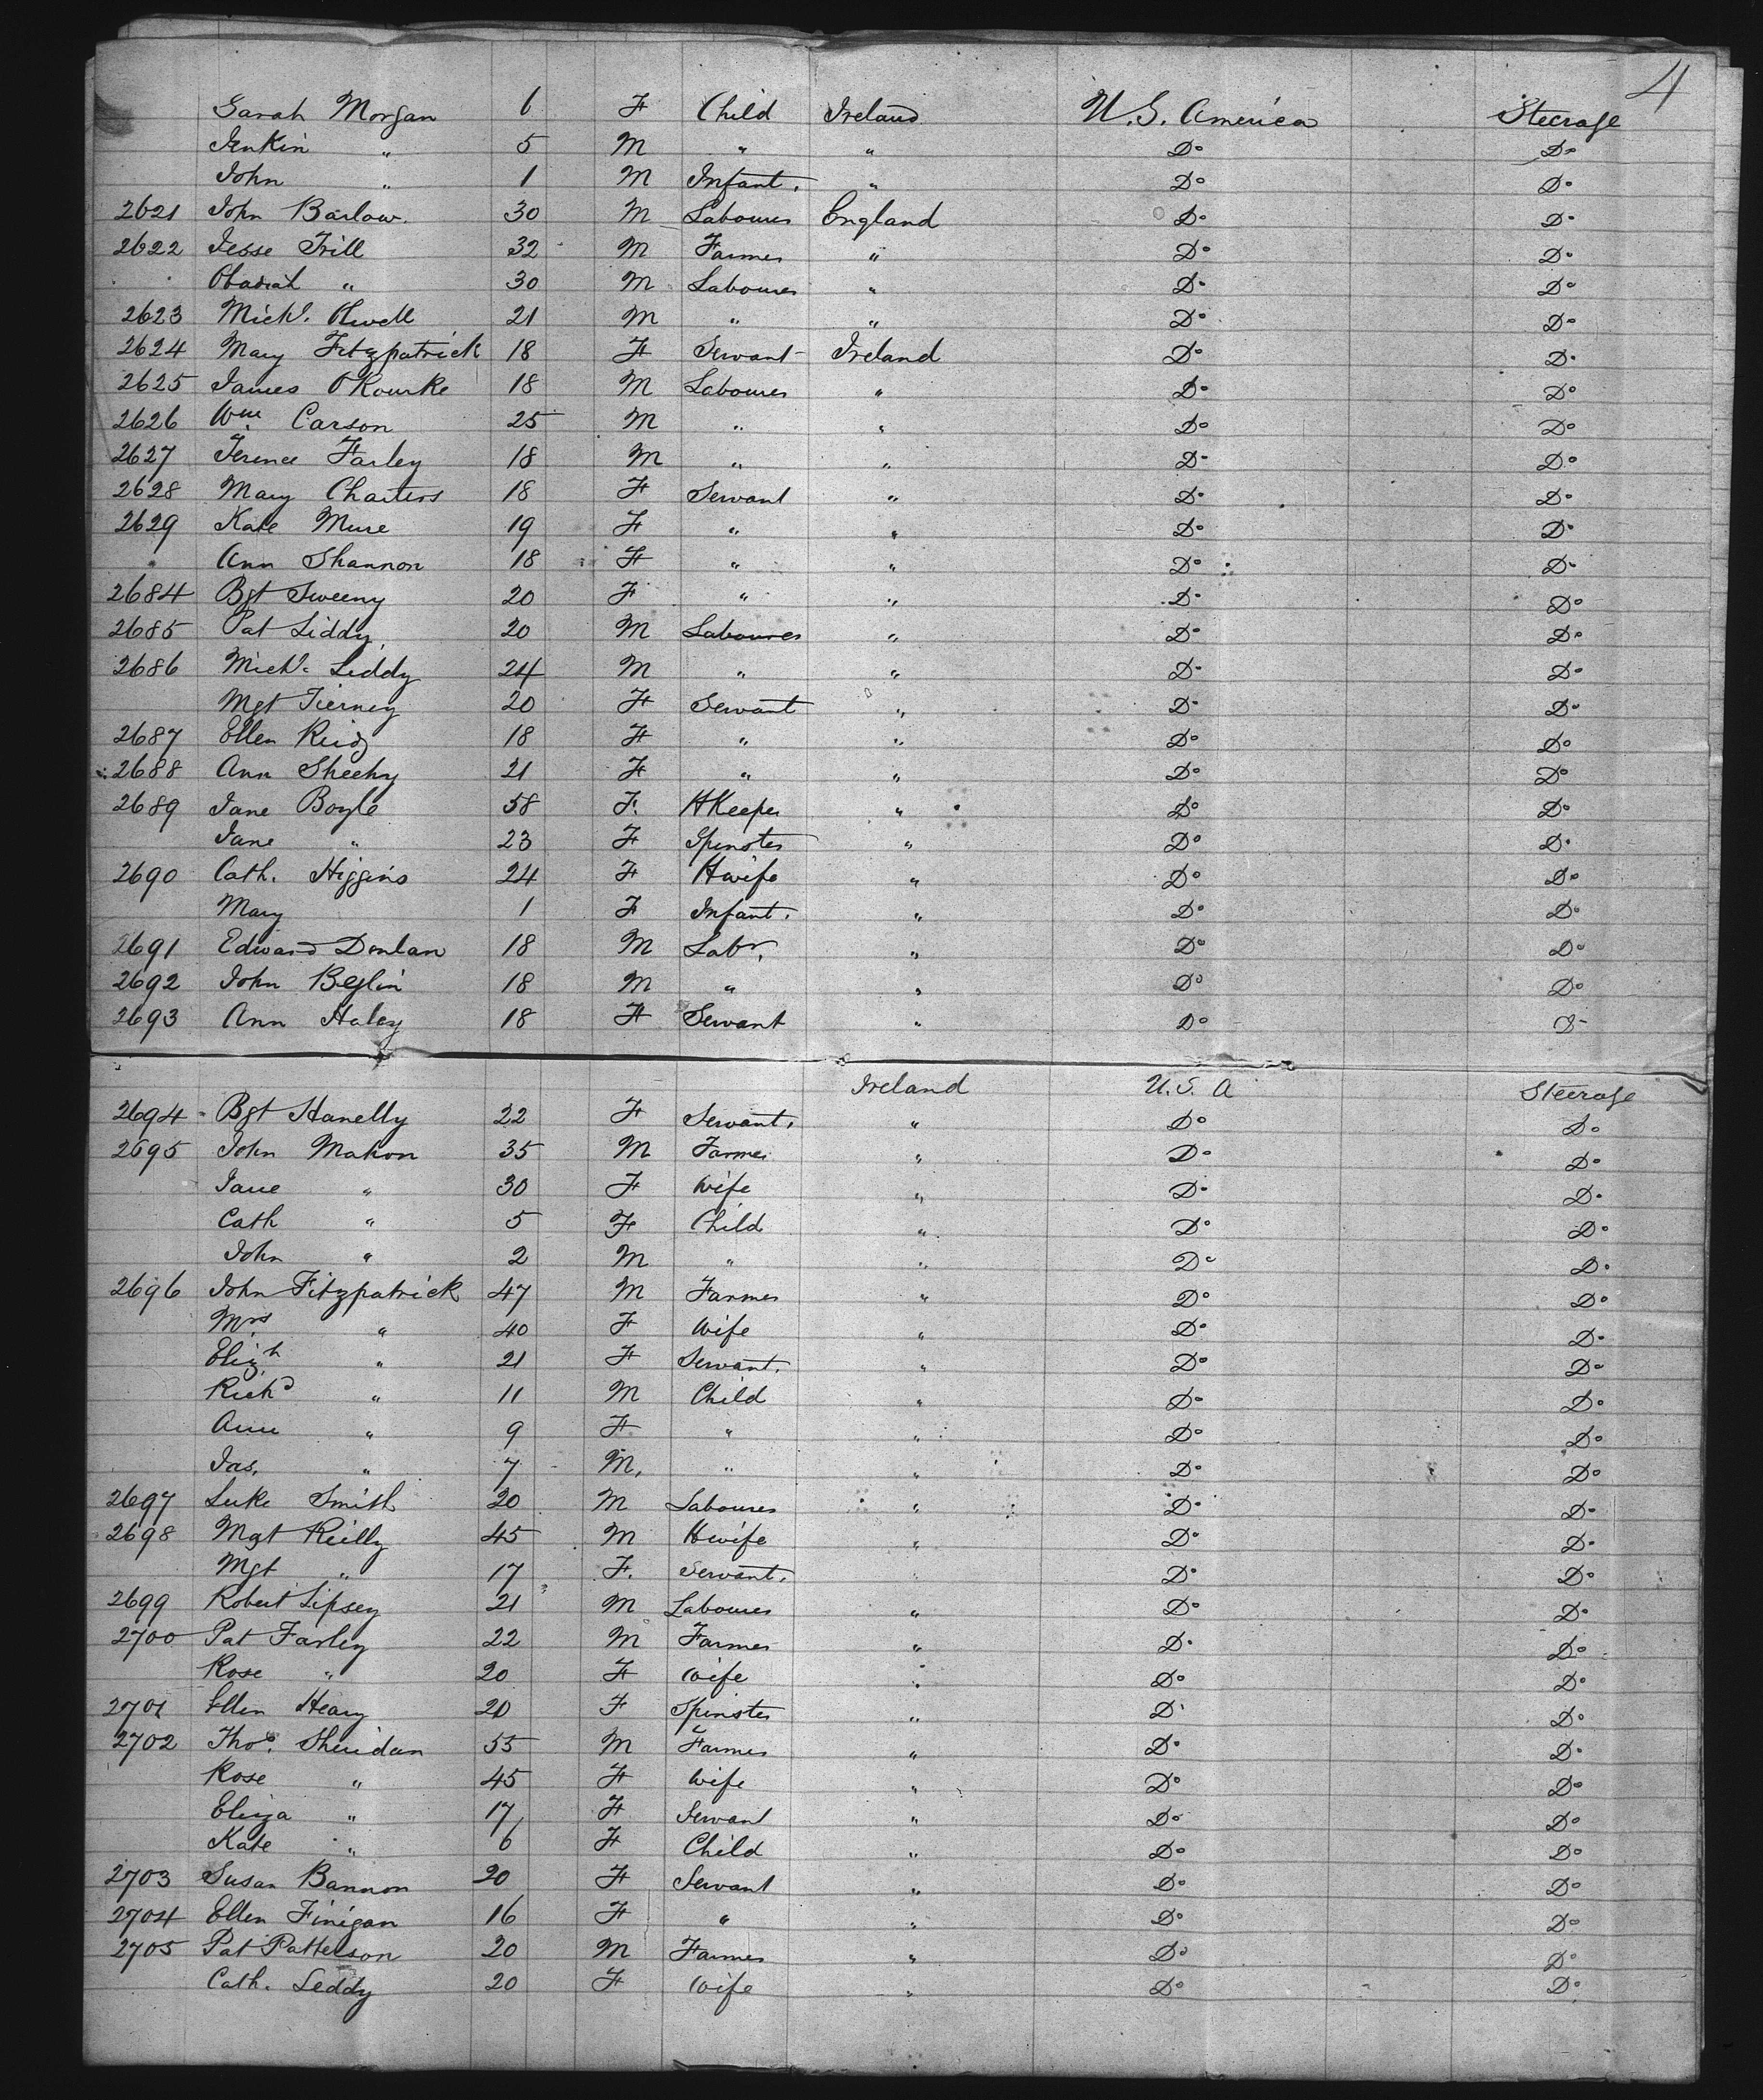 4
Sarah Morgan 6 F Child Ireland U.S. America Steerage
Jenkin " 5 M " " Do Do
John " 1 M Infant. " Do Do
2621 John Barlow. 30 M Labourer England Do Do
2622 Jesse Trill 32 M Farmer " Do Do
Obadiah " 30 M Labourer " Do Do
2623 Michl. 21 M " " Do Do
2624 Mary Fitzpatrick 18 F Servant Ireland Do Do
2625 James O'Rourke 18 M Labourer " Do Do
2626 Wm Carson 25 M " " Do Do
2627 Terence Farley 18 M " " Do Do
2628 Mary Charters 18 F Servant " Do Do
2629 Kate Mure 19 F " " Do Do
" Ann Shannon 18 F " " Do Do
2684 Bgt Sweeny 20 F " " Do Do
2685 Pat Liddy 20 M Labourer " Do Do
2686 Michl. Leddy 24 M " " Do Do
Mgt Tierney 20 F Servant " Do Do
2687 Ellen Reidy 18 F " " Do Do
2688 Ann Sheehy 21 F " " Do Do
2689 Jane Boyle 58 F. HKeeper " Do Do
Jane " 23 F Spinster " Do Do
2690 Cath. Higgins 24 F Hwife " Do Do
Mary 1 F Infant. " Do Do
2691 Edward Donlan 18 M Labr. " Do Do
2692 John Beglin 18 M " " Do Do
2693 Ann Haley 18 F Servant " Do Do
Ireland U.S.A Steerage
2694 Bgt Hanelly 22 F Servant. " Do Do
2695 John Mahon 35 M Farmer " Do Do
Jane " 30 F Wife " Do Do
Cath " 5 F Child " Do Do
John " 2 M " " Do Do
2696 John Fitzpatrick 47 M Farmer " Do Do
Mrs " 40 F Wife " Do Do
Elizh " 21 F Servant. " Do Do
Richd " 11 M Child " Do Do
Ann " 9 F " " Do Do
Jas. " 7 M. " " Do Do
2697 Luke Smith 20 M Labourer " Do Do
2698 Mgt Reilly 45 M Hwife " Do Do
Mgt " 17 F. Servant. " Do Do
2699 Robert Lipsey 21 M Labourer " Do Do
2700 Pat Farley 22 M Farmer " Do Do
Rose " 20 F Wife " Do Do
2701 Ellen Heary 20 F Spinster " Do Do
2702 Thos. Sheridan 55 M Farmer " Do Do
Rose " 45 F Wife " Do Do
Eliza " 17 F Servant " Do Do
Kate " 6 F Child " Do Do
2703 Susan Bannon 20 F Servant " Do Do
2704 Ellen Finigan 16 F " " Do Do
2705 Pat Patterson 20 M Farmer " Do Do
Cath. Leddy 20 F Wife " Do Do